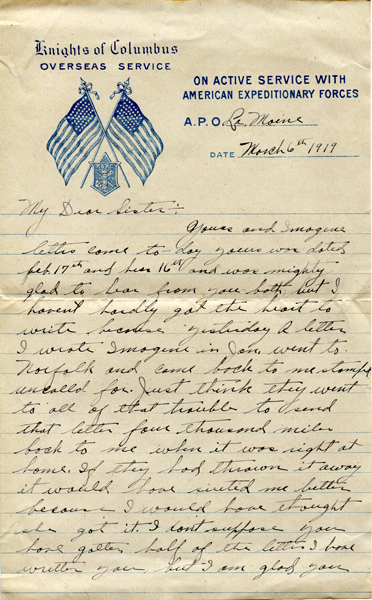 Knights of Columbus
OVERSEAS SERVICE
ON ACTIVE SERVICE WITH
AMERICAN EXPEDITIONARY FORCES
A.P.O. La Maine
DATE March 6th 1919
My Dear Sister:
Yours and Imogine
letters came to-day yours was dated
feb 17th and hers 16th and was mighty
glad to hear from you both but I
haven't hardly got the heart to
write because yesterday a letter
I wrote Imogine in Jan. went to
Norfolk and came back to me stamped
uncalld for. Just think they went
to all of that trouble to send
that letter four thousand miles
back to me when it was right at
home. If they had thrown it away
it would have suited me better
because I would have thought
she got it. I cant suppose you
have gotten half of the letters I have
written you but I am glad you